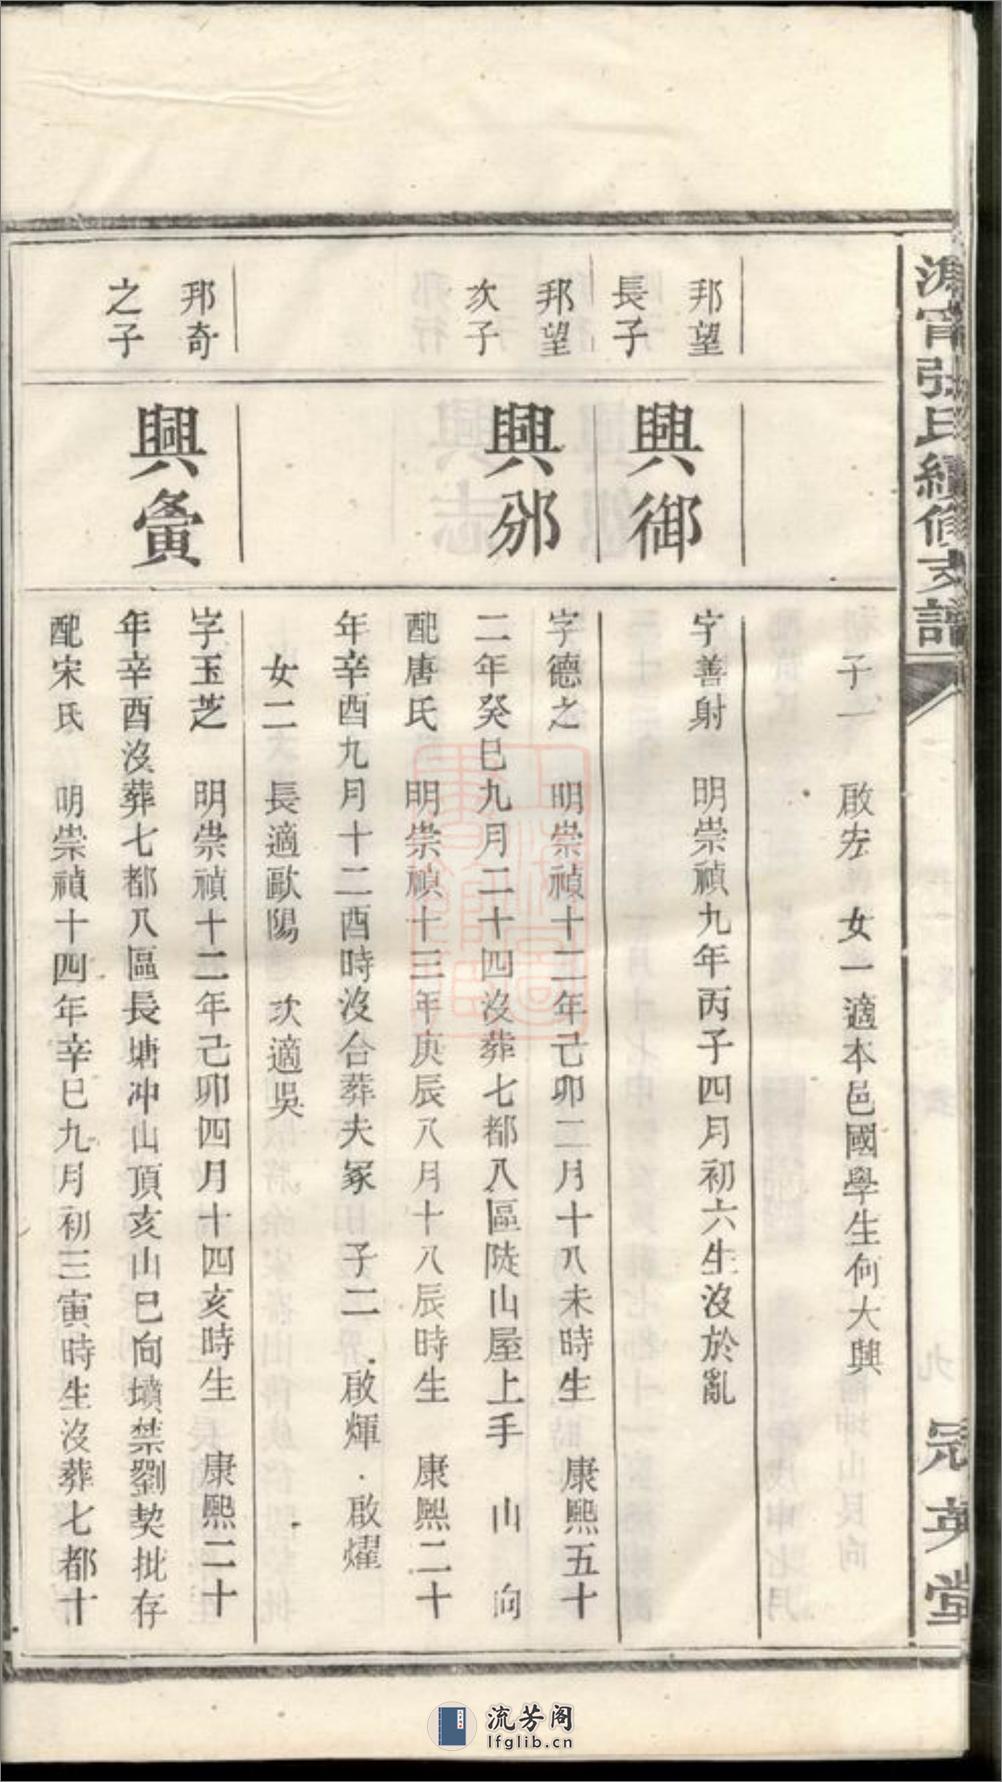 甯張氏續修支譜
冠英堂
子一 啟宏 女一適本邑國學生何大興
邦望
長子
興御
字善射 明崇禎九年丙子四月初六生沒於亂
邦望
次子
興邠
字德之 明崇禎十二年己卯二月十八未時生 康熙五十
二年癸巳九月二十四沒葬七都八區陡山屋上手 山 向
配唐氏 明崇禎十三年庚辰八月十八辰時生 康熙二十
年辛酉九月十二酉時沒合葬夫冢 子二 啟煇 啟燿
女二 長適歐陽 次適吳
邦奇
之子
興夤
字玉芝 明崇禎十二年己卯四月十四亥時生 康熙二十
年辛酉沒葬七都八區長塘冲山頂亥山巳向墳禁劉契批存
配宋氏 明崇禎十四年辛巳九月初三寅時生沒葬七都十
流芳阁
lfglib.cn